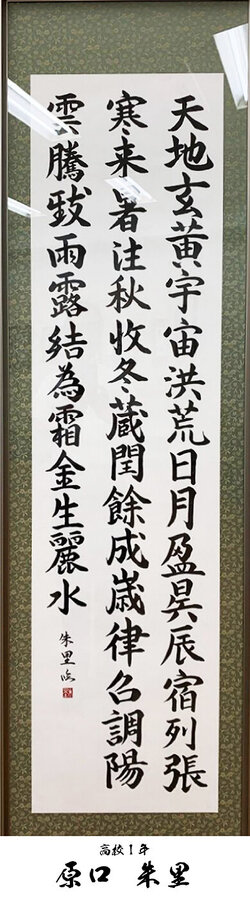 天地玄黃宇宙洪荒日月盈昃辰宿列張
寒来暑注秋收冬蔵閏餘成歳律呂調陽
雲騰致雨露結為霜金生麗水
朱里臨
高校1年
原口 朱里